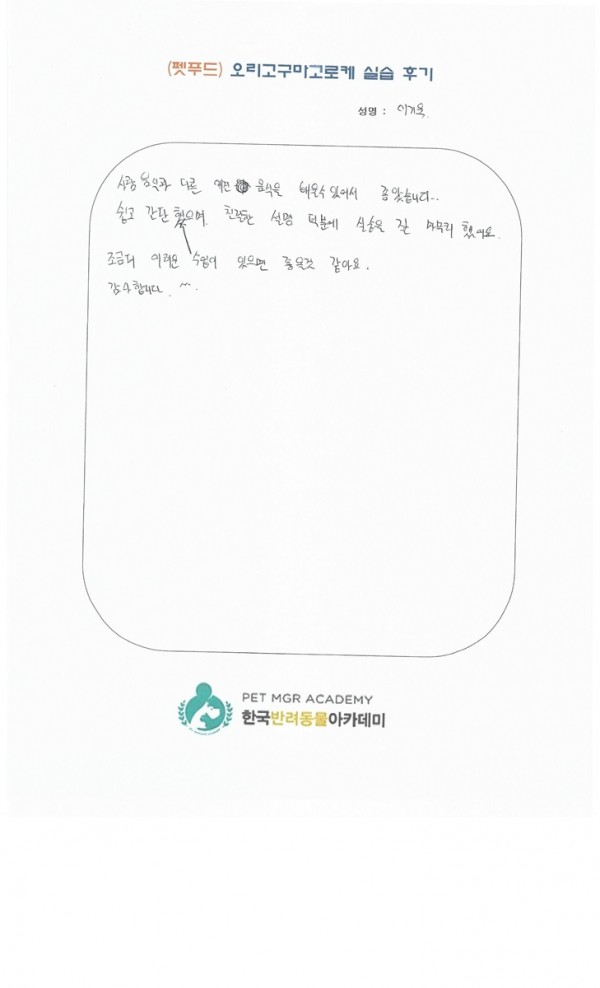 (펫푸드) 오리고구마고로케 실습 후기
성명 :
사람 음식과 다른 애견 음식을 배울수있어서 좋았습니다...
쉽고 간단했으며, 친절한 설명 덕분에 실습을 잘 마무리 했어요.
조금더 어려운 수업이 있으면 좋을것 같아요.
감사합니다. ^^.
PET MGR ACADEMY
한국반려동물아카데미